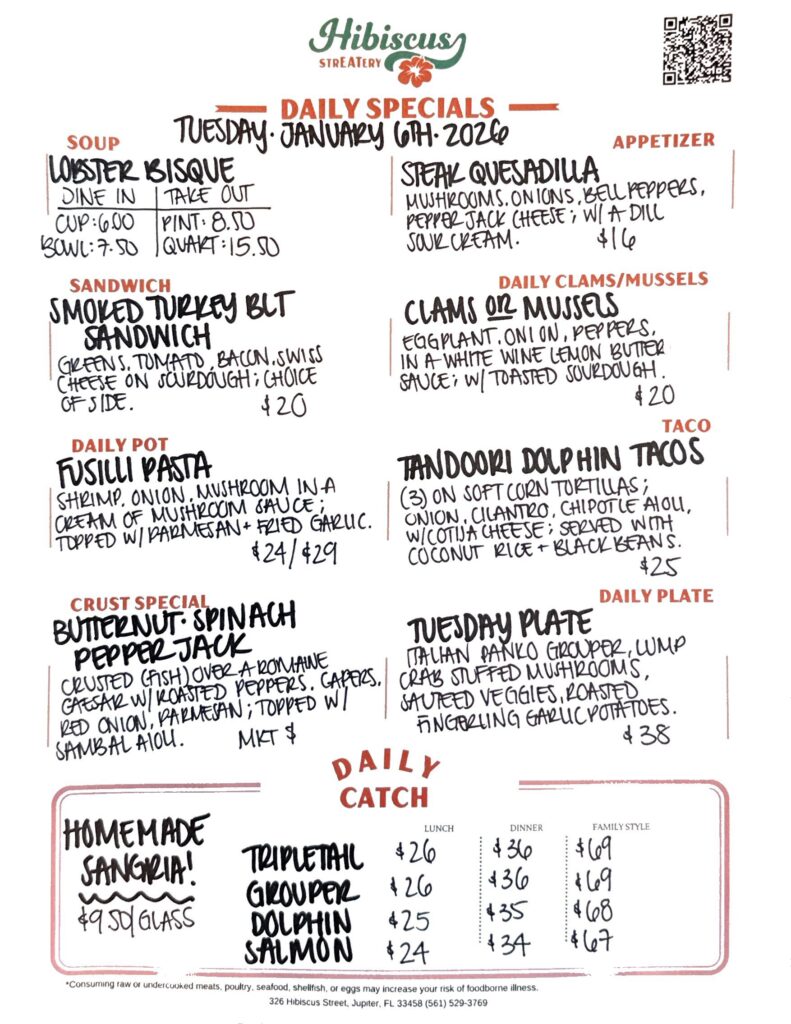 Hibiscus
STREATERY
DAILY SPECIALS
TUESDAY · JANUARY 6TH · 2026
SOUP
LOBSTER BISQUE
DINE IN | TAKE OUT
CUP: 6.00 | PINT: 8.50
BOWL: 7.50 | QUART: 15.50
APPETIZER
STEAK QUESADILLA
MUSHROOMS, ONIONS, BELL PEPPERS,
PEPPER JACK CHEESE; W/ A DILL
SOUR CREAM. $16
SANDWICH
SMOKED TURKEY BLT
SANDWICH
GREENS, TOMATO, BACON, SWISS
CHEESE ON SOURDOUGH; CHOICE
OF SIDE. $20
DAILY CLAMS/MUSSELS
CLAMS OR MUSSELS
EGGPLANT, ONION, PEPPERS,
IN A WHITE WINE LEMON BUTTER
SAUCE; W/ TOASTED SOURDOUGH.
$20
DAILY POT
FUSILLI PASTA
SHRIMP, ONION, MUSHROOM IN A
CREAM OF MUSHROOM SAUCE;
TOPPED W/ PARMESAN + FRIED GARLIC.
$24/$29
TACO
TANDOORI DOLPHIN TACOS
(3) ON SOFT CORN TORTILLAS;
ONION, CILANTRO, CHIPOTLE AIOLI,
W/COTIJA CHEESE; SERVED WITH
COCONUT RICE + BLACK BEANS.
$25
CRUST SPECIAL
BUTTERNUT · SPINACH
PEPPER JACK
CRUSTED (FISH) OVER A ROMAINE
CAESAR W/ ROASTED PEPPERS, CAPERS,
RED ONION, PARMESAN; TOPPED W/
SAMBAL AIOLI. MKT $
DAILY PLATE
TUESDAY PLATE
ITALIAN PANKO GROUPER, LUMP
CRAB STUFFED MUSHROOMS,
SAUTEED VEGGIES, ROASTED
FINGERLING GARLIC POTATOES.
$38
DAILY
CATCH
HOMEMADE
SANGRIA!
$9.50/GLASS
LUNCH DINNER FAMILY STYLE
TRIPLETAIL $26 $36 $69
GROUPER $26 $36 $69
DOLPHIN $25 $35 $68
SALMON $24 $34 $67
*Consuming raw or undercooked meats, poultry, seafood, shellfish, or eggs may increase your risk of foodborne illness.
326 Hibiscus Street, Jupiter, FL 33458 (561) 529-3769